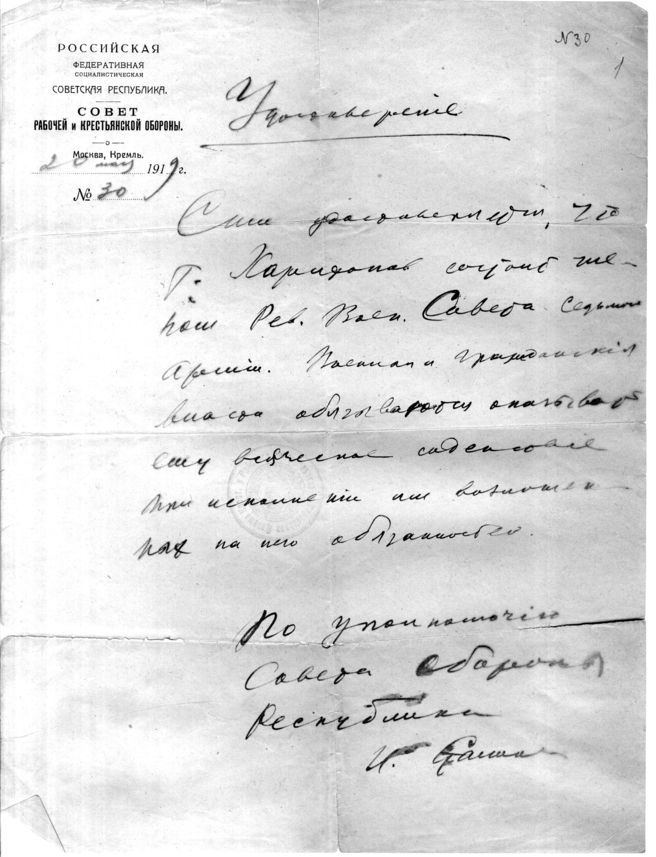 N30
1
РОССИЙСКАЯ
ФЕДЕРАТИВНАЯ
СОЦИАЛИСТИЧЕСКАЯ
СОВЕТСКАЯ РЕСПУБЛИКА.
СОВЕТ
РАБОЧЕЙ и КРЕСТЬЯНСКОЙ ОБОРОНЫ.
Москва, Кремль.
1919 г.
№ 30
Удостоверение
Сим удостоверяется, что
т. состоит чле-
ном Рев. Воен. Совета Седьмой
Армии. Военная и гражданския
власти обязываются оказывать
ему всяческое содействие
при исполнении им возложен-
ных на него обязанностей.
По уполномочию
Совета Обороны
Республики
И. Сталин